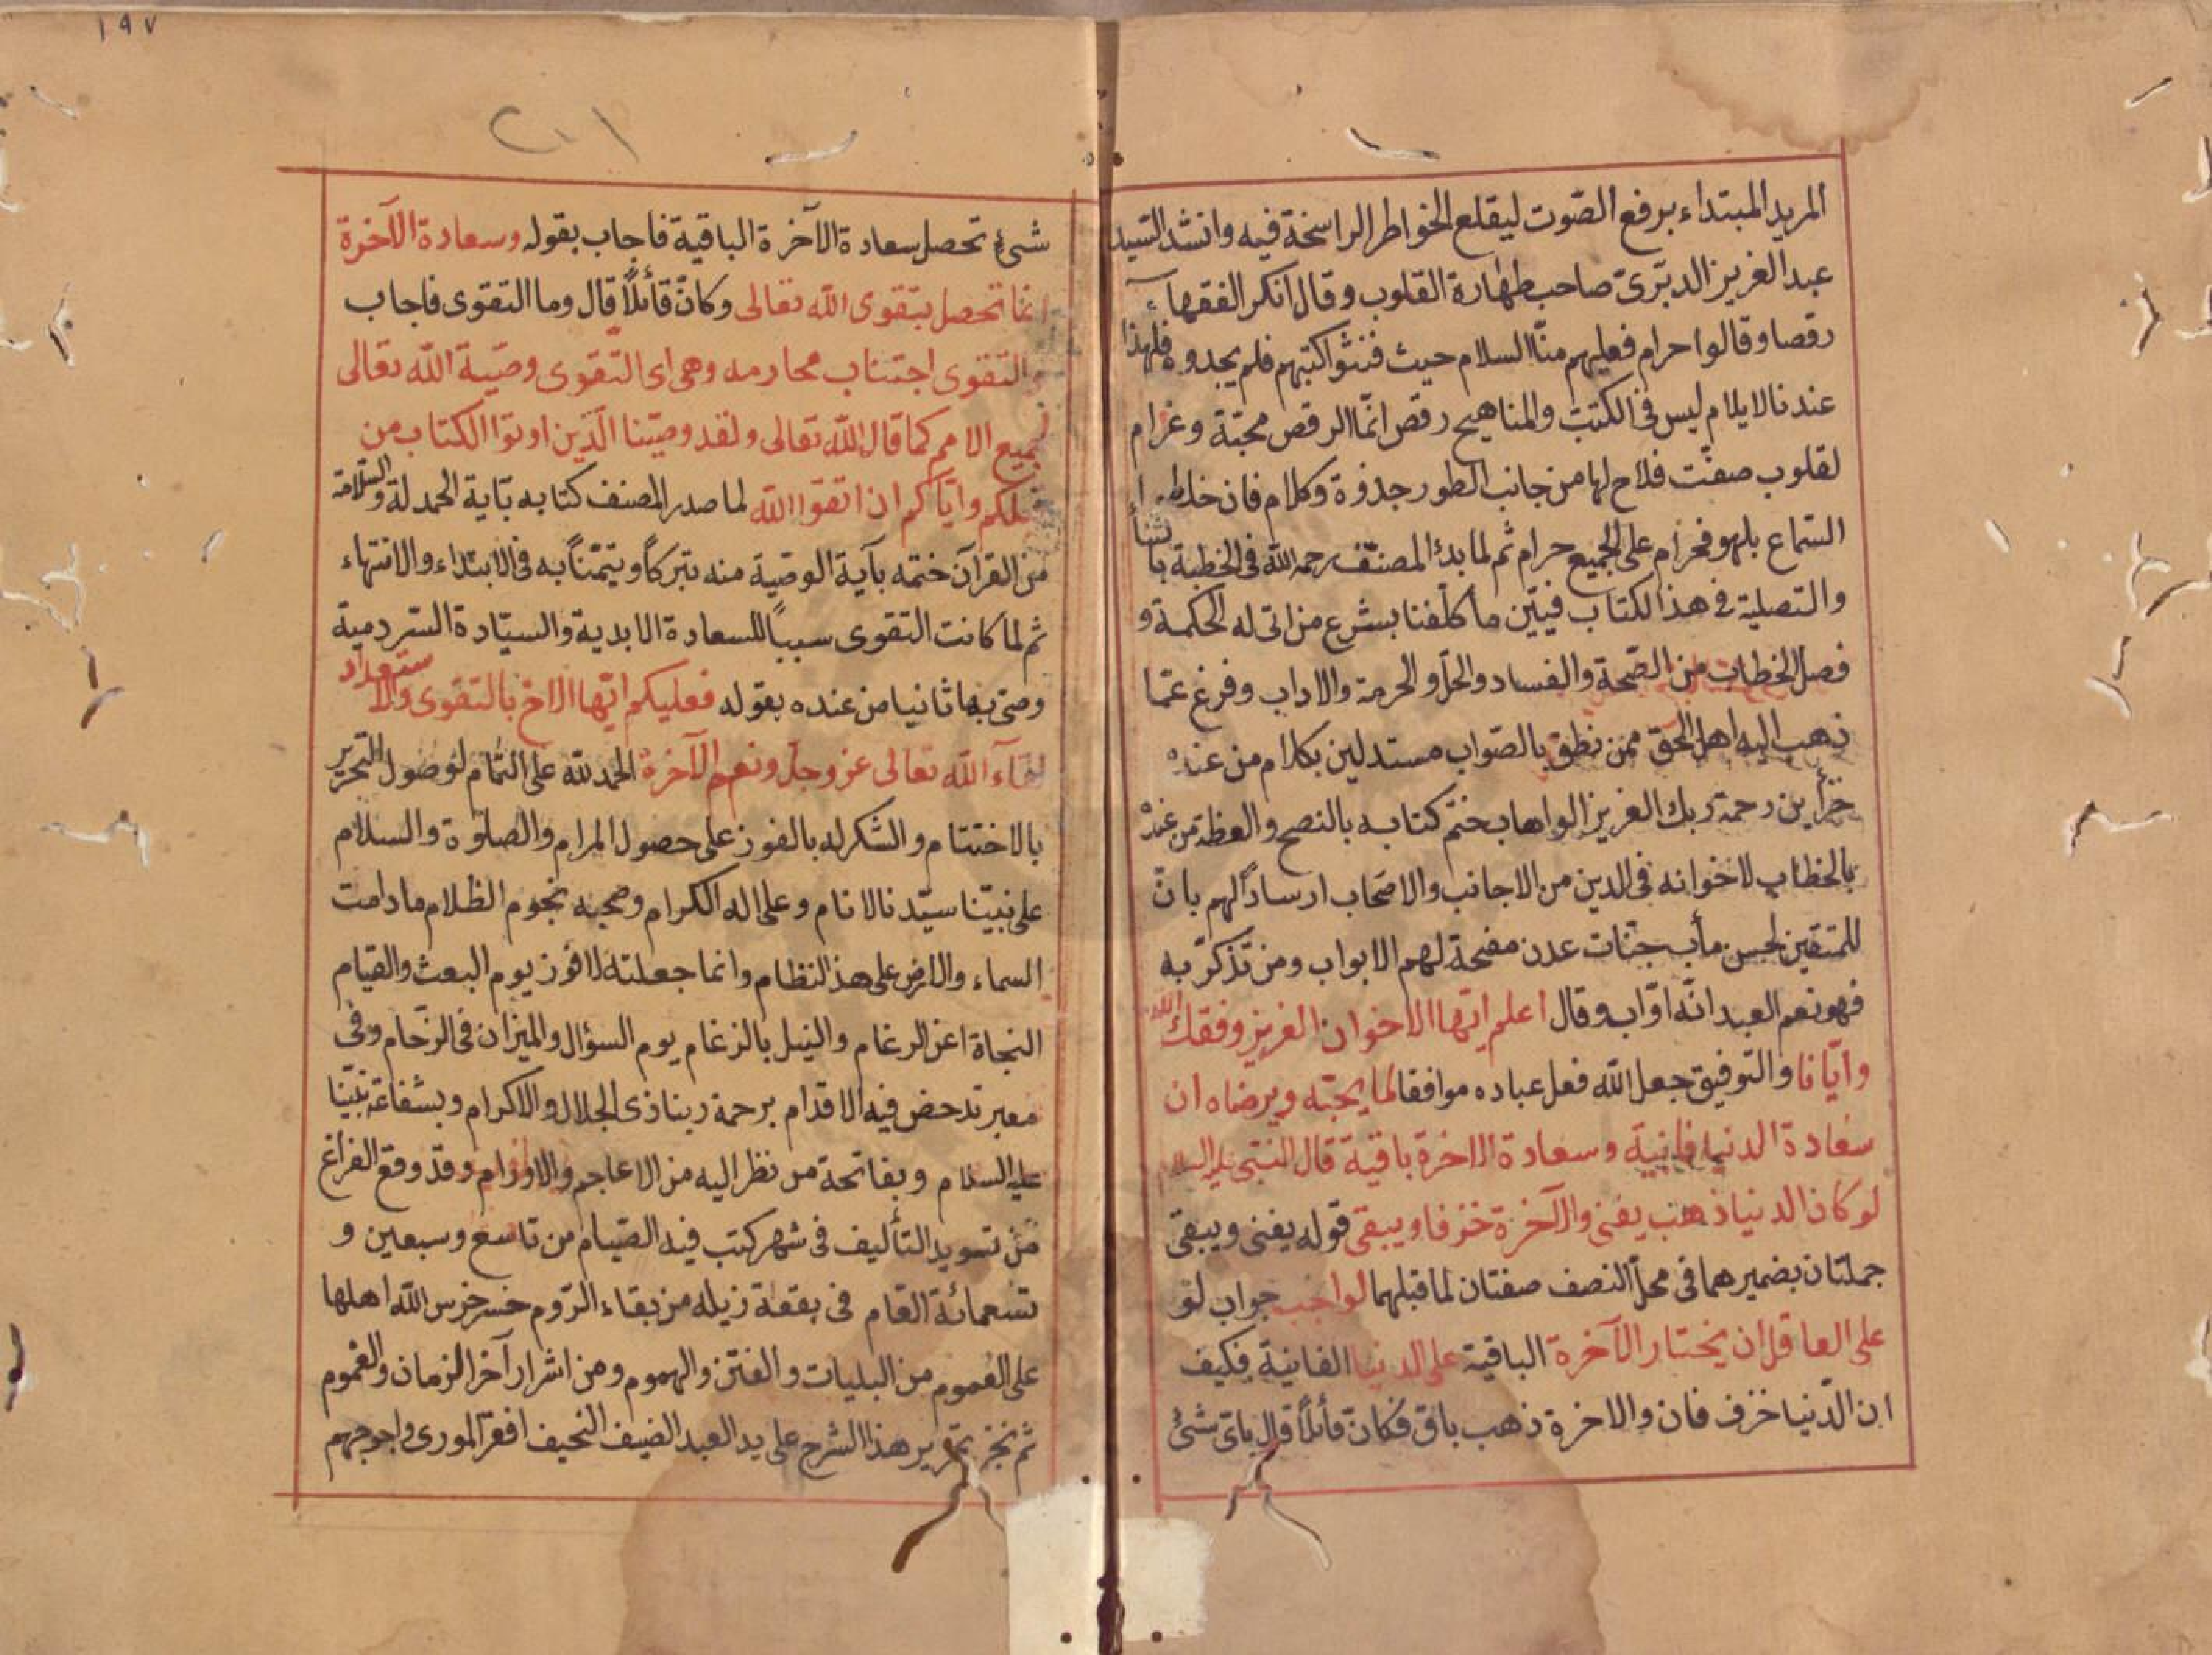 المريد المبتداء برفع الصّوت ليقلع الخواطر الراسخة فيه وانشد السّيد
عبد العزيز الديرىّ صاحب طهارة القلوب وقال انكر الفقهاء
رقصا وقالوا حرام فعليهم منّا السلام حيث فتشوا كتبهم فلم يجدوه فلهذا
عندنا لايلام ليس فى الكتب والمناهيج رقص انّما الرقص محبّة وغرام
لقلوب صفّت فلاح لها من جانب الطور جذوة وكلام فان خلط
السّماع بلهو فحرام على الجميع حرام ثم لما بدئ المصنّف رحمه الله فى الخطبة بالثناء
والتصلية فى هذا الكتاب فبيّن ما كلّفنا بشرع من اتى له الحكمة و
فصل الخطاب من الصّحة والفساد والحل والحرمة والاداب وفرغ عمّا
ذهب اليه اهل الحق ممن نطق بالصّواب مستدلين بكلام من عنده
خزاين رحمة ربك العزيز الواهاب ختم كتابه بالنصح والعظة من عنده
بالخطاب لاخوانه فى الدين من الاجانب والاصحاب ارسادًا لهم بانّ
للمتقين لحسن مأب جنّات عدن مفتحة لهم الابواب ومن تذكّر به
فهو نعم العبد انّه اوّاب وقال اعلم ايّها الاخوان العزيز وفقك الله
وايّانا والتّوفيق جعل الله فعل عباده موافقا لما يحبّه ويرضاه ان
سعادة الدنيا فانية وسعادة الاخرة باقية قال النبّى عليه السلام
لو كان الدنيا ذهب يفنى والآخرة خزفا ويبقى قوله يفنى ويبقى
جملتان بضميرهما فى محلّ النصف صفتان لما قبلهما لواجب جواب لو
على العاقل ان يختار الآخرة الباقية على الدنيا الفانية فكيف
ان الدّنيا خزف فان والاخرة ذهب باق فكانّ قائلًا قال باىّ شئ
١٩٧
شئ تحصل سعادة الآخرة الباقية فاجاب بقوله وسعادة الآخرة
انما تحصل بتقوى الله تعالى وكانّ قائلًا قال وما التقوى فاجاب
والتقوى اجتناب محارمه وهى اى التّقوى وصّية الله تعالى
لجميع الامم كما قال الله تعالى ولقد وصّينا الّذين اوتوا الكتاب من
قبلكم وايّاكم ان اتقوا الله لما صدر المصنف كتابه بآية الحمدلة والسّلامة
من القرآن ختمه بآية الوصّية منه تبركًا ويتمّنًا به فى الابتداء والانتهاء
ثم لما كانت التقوى سببًا للسعادة الابدية والسيّادة السّردمية
وصّى بها ثانيا من عنده بقوله فعليكم ايّها الاخ بالتقوى والاستعداد
لقآء الله تعالى عز وجل ونعيم الآخرة الحمد لله على التّمام لوصول التحرير
بالاختتام والشكر له بالفوز على حصول المرام والصلوة والسلام
على نبيّنا سيّدنا الانام وعلى اله الكرام وصحبه نجوم الظلام مادامت
السماء والارض على هذ النظام وانما جعلته لافوز يوم البعث والقيام
النجاة اعن الرغام والنيل بالزغام يوم السؤال والميزان فى الزحام وفى
معبر تدحض فيه الاقدام برحمة ربنا ذى الجلال والاكرام وبشفاعة نبيّنا
عليه السلام وبفاتحة من نظر اليه من الاعاجم والاورام وقد وقع الفراغ
من تسويد التأليف فى شهر كتب فيه الصّيام من تاسع وسبعين و
تسعمائة العام فى بقعة زيله من بقاء الرّوم خسر خرس الله اهلها
على العموم من البليات والفتن والهموم ومن اشرار آخر الزمان والغموم
ثم نجز تحرير هذا الشرح على يد العبد الضيف النحيف افقر المورى واحوجهم